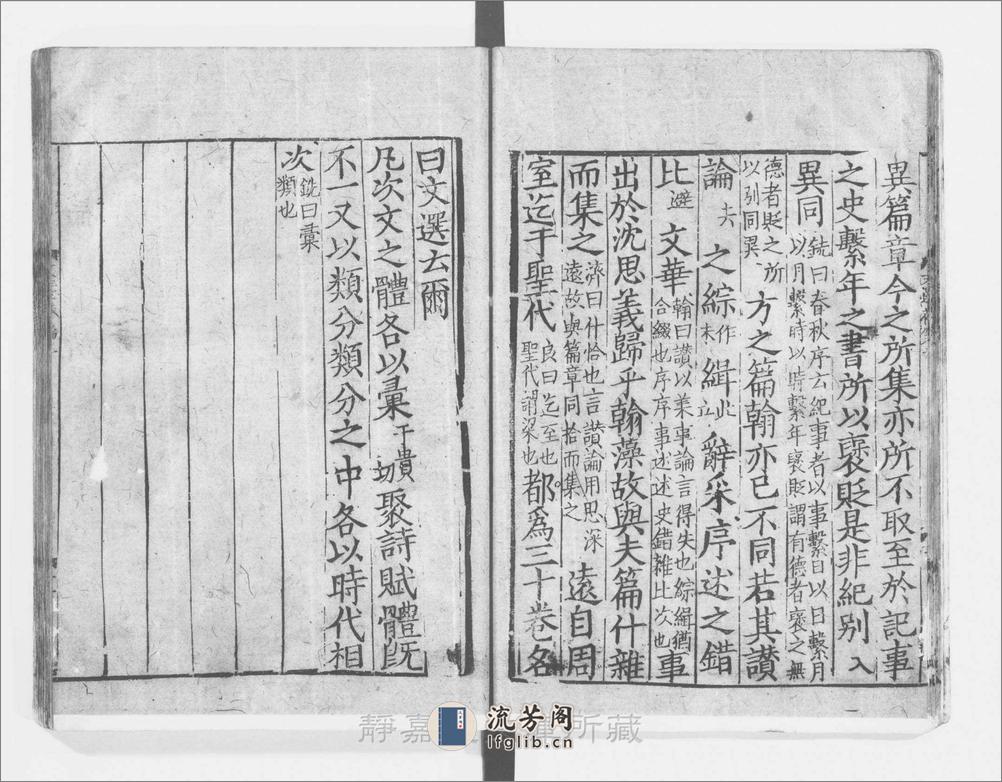 異篇章今之所集亦所不取至於記事
之史繫年之書所以襃貶是非紀别入
異同銑曰春秋序云紀事者以事繫日以日繫月以月繫時以時繫年襃貶謂有德者襃之無
德者貶之所以别同異方之篇翰亦已不同若其讃
論去之綜作未緝此立辭采序述之錯
比避文華翰曰讃以美事論言得失也綜緝猶合綴也序序事述述史錯雜比次也事
出於沈思義歸乎翰藻故與夫篇什雜
而集之濟曰什恰也言讃論用思深遠故與篇章同拾而集之遠自周
室迄于聖代良曰迄至也聖代謂梁也都為三十卷名
曰文選云爾
凡次文之體各以彙于貴切聚詩賦體旣
不一又以類分類分之中各以時代相
次銑曰彙類也
靜嘉 所藏
流芳阁
lfglib.cn